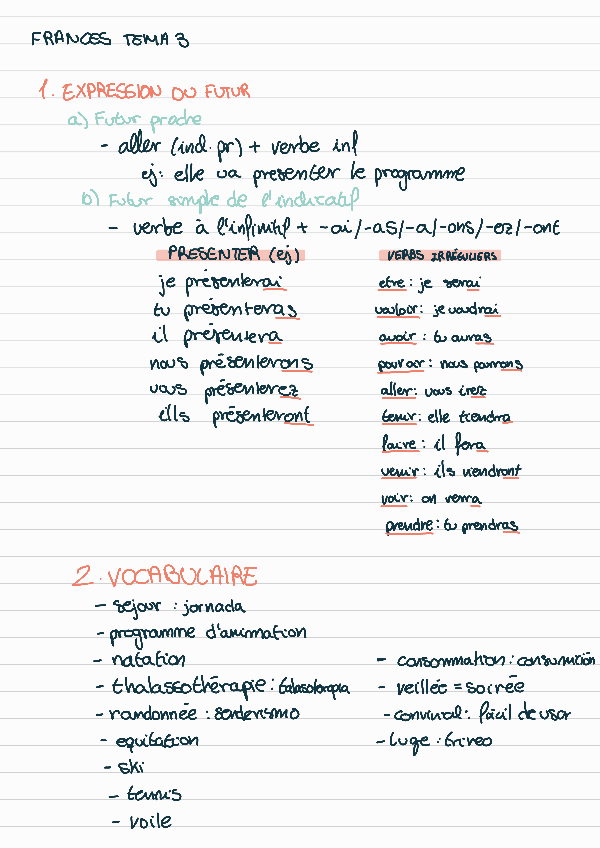 FRANCES TEMA 3
1. EXPRESSION DU FUTUR
a) Futur proche
- aller (ind. pr) + verbe inf
ej: elle va presenter le programme
b) Futur simple de l'indicatif
- verbe à l'infinitif + -ai/-as/-a/-ons/-ez/-ont
PRESENTER (ej)
je présenterai
tu présenteras
il présentera
nous présenterons
vous présenterez
ills présenteront
VERBS IRRÉGULIERS
etre: je serai
vouloir: je voudrai
avoir: tu auras
pouvoir: nous pourrons
aller: vous irez
tenir: elle tiendra
faire: il fera
venir: ils viendront
voir: on verra
prendre: tu prendras
2. VOCABULAIRE
- sejour: jornada
- programme d'animation
- natation
- thalassothérapie: talasoterapia
- randonnée: senderismo
- equitation
- ski
- tennis
- voile
- consommation: consumición
- veillée = soirée
- convivial: fácil de usar
- luge: trineo